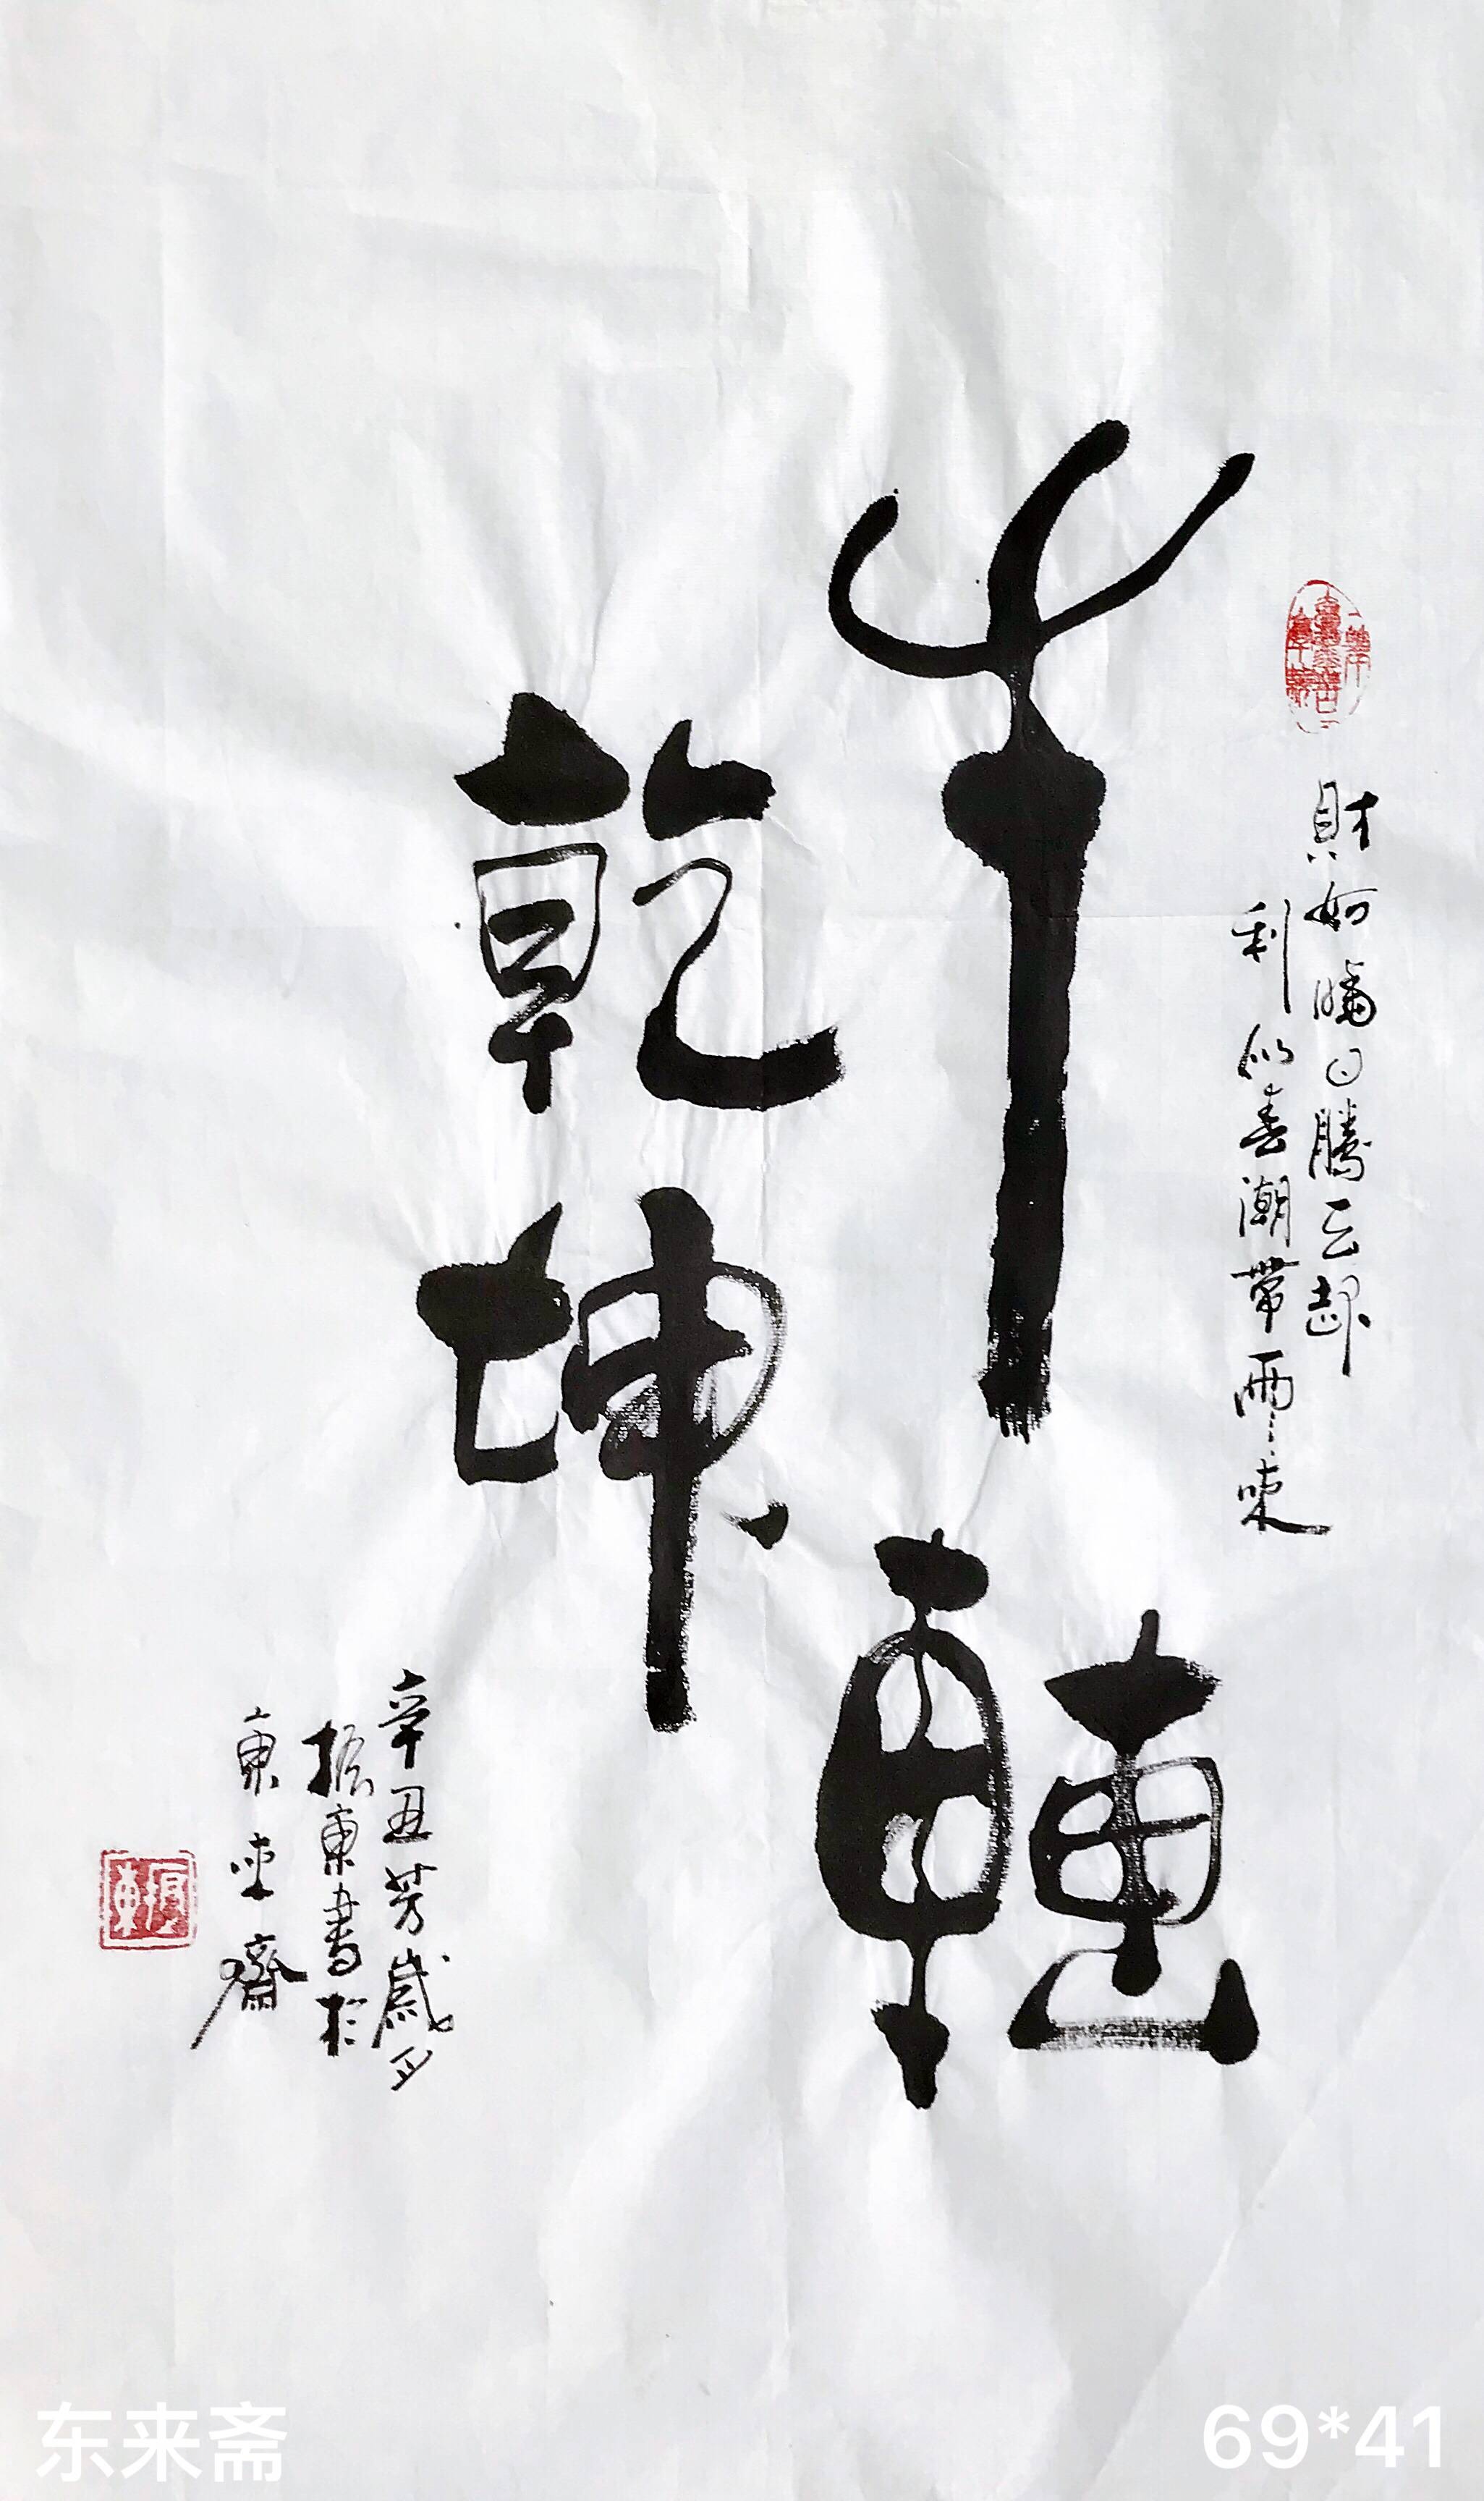 財如曉日騰云起
利似春潮帶雨來
牛轉
乾坤
辛丑芳歲月
振東書於
東來齋
振東
东来斋
69*41